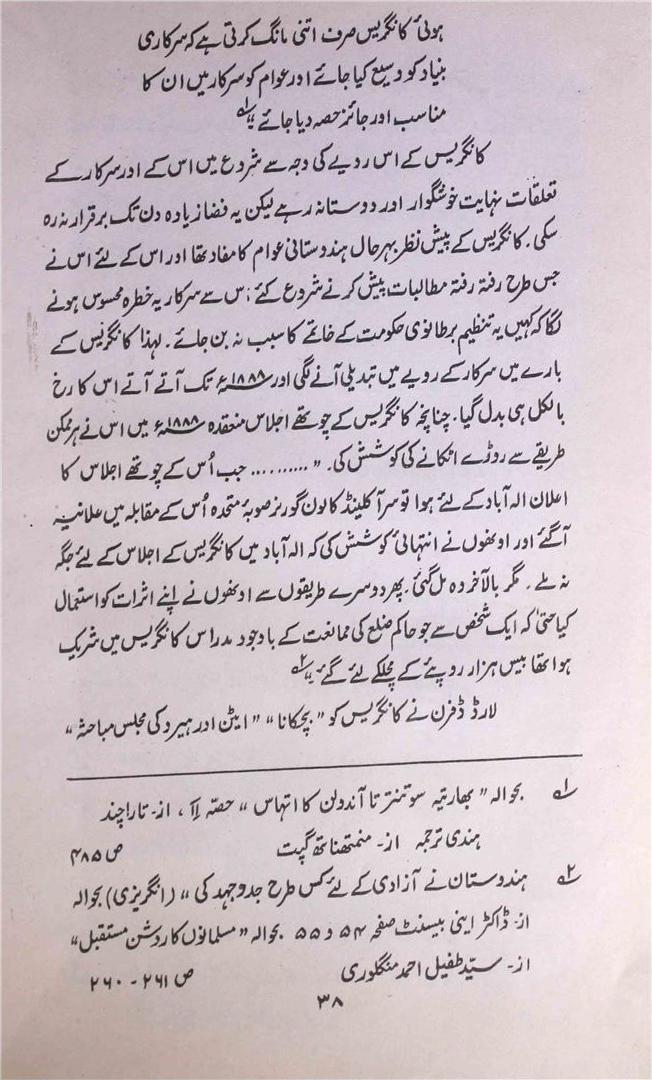 ہوئی کانگریس صرف اتنی مانگ کرتی ہے کہ سرکاری
بنیاد کو وسیع کیا جائے اور عوام کو سرکار میں ان کا
مناسب اور جائز حصہ دیا جائے ؂۱
کانگریس کے اس رویے کی وجہ سے شروع میں اس کے اور سرکار کے
تعلقات نہایت خوشگوار اور دوستانہ رہے لیکن یہ فضا زیادہ دن تک برقرار نہ رہ
سکی۔ کانگریس کے پیش نظر بہرحال ہندوستانی عوام کا مفاد تھا اور اس کے لئے اس نے
جس طرح رفتہ رفتہ مطالبات پیش کرنے شروع کئے اس سے سرکار یہ خطرہ محسوس ہونے
لگا کہ کہیں یہ تنظیم برطانوی حکومت کے خاتمے کا سبب نہ بن جائے۔ لہذا کانگریس کے
بارے میں سرکار کے رویے میں تبدیلی آنے لگی اور ۱۸۸۸ء تک آتے آتے اس کا رخ
بالکل ہی بدل گیا۔ چنانچہ کانگریس کے چوتھے اجلاس منعقدہ ۱۸۸۸ء میں اس نے ہر ممکن
طریقے سے روڑے اٹکانے کی کوشش کی۔ "......... جب اُس کے چوتھے اجلاس کا
اعلان الہ آباد کے لئے ہوا تو سر آکلینڈ کالون گورنر صوبۂ متحدہ اُس کے مقابلہ میں علانیہ
آگئے اور اوبھوں نے انتہائی کوشش کی کہ الہ آباد میں کانگریس کے اجلاس کے لئے جگہ
نہ ملے۔ مگر بالآخر وہ مل گئی۔ پھر دوسرے طریقوں سے اوبھوں نے اپنے اثرات کو استعمال
کیا حتیٰ کہ ایک شخص سے جو حاکم ضلع کی ممانعت کے باوجود مدراس کانگریس میں شریک
ہوا تھا بیس ہزار روپئے کے مچلکے لئے گئے" ؂۲
لارڈ ڈفرن نے کانگریس کو "بچکانا" "ایٹن اور ہیرو کی مجلس مباحثہ"
؂۱ بحوالہ "بھارتیہ سوتنترتا آندولن کا اتہاس" حصّہ II، از۔ تارا چند
ہندی ترجمہ از۔ منمتھناتھ گپت ص ۴۸۵
؂۲ ہندوستان نے آزادی کے لئے کس طرح جدوجہد کی" (انگریزی) بحوالہ
از۔ ڈاکٹر اینی بیسنٹ صفحہ ۵۴ و ۵۵ بحوالہ "مسلمانوں کا روشن مستقبل"
از۔ سیّد طفیل احمد منگلوری ص ۲۶۱ - ۲۶۰
۳۸